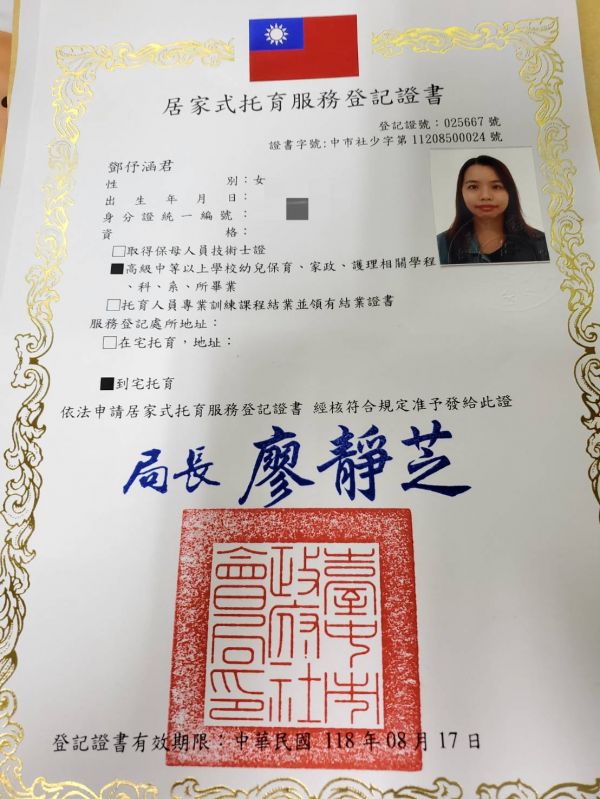 居家式托育服務登記證書
登記證號：025667 號
證書字號：中市社少字第 11208500024 號
鄧伃涵君
性別：女
出生年月日：
身分證統一編號：
資格：
□取得保母人員技術士證
■高級中等以上學校幼兒保育、家政、護理相關學程
、科、系、所畢業
□托育人員專業訓練課程結業並領有結業證書
服務登記處所地址：
□在宅托育，地址：
■到宅托育
依法申請居家式托育服務登記證書 經核符合規定准予發給此證
局長 廖靜芝
臺中市政府社會局印
登記證書有效期限：中華民國 118 年 08 月 17 日